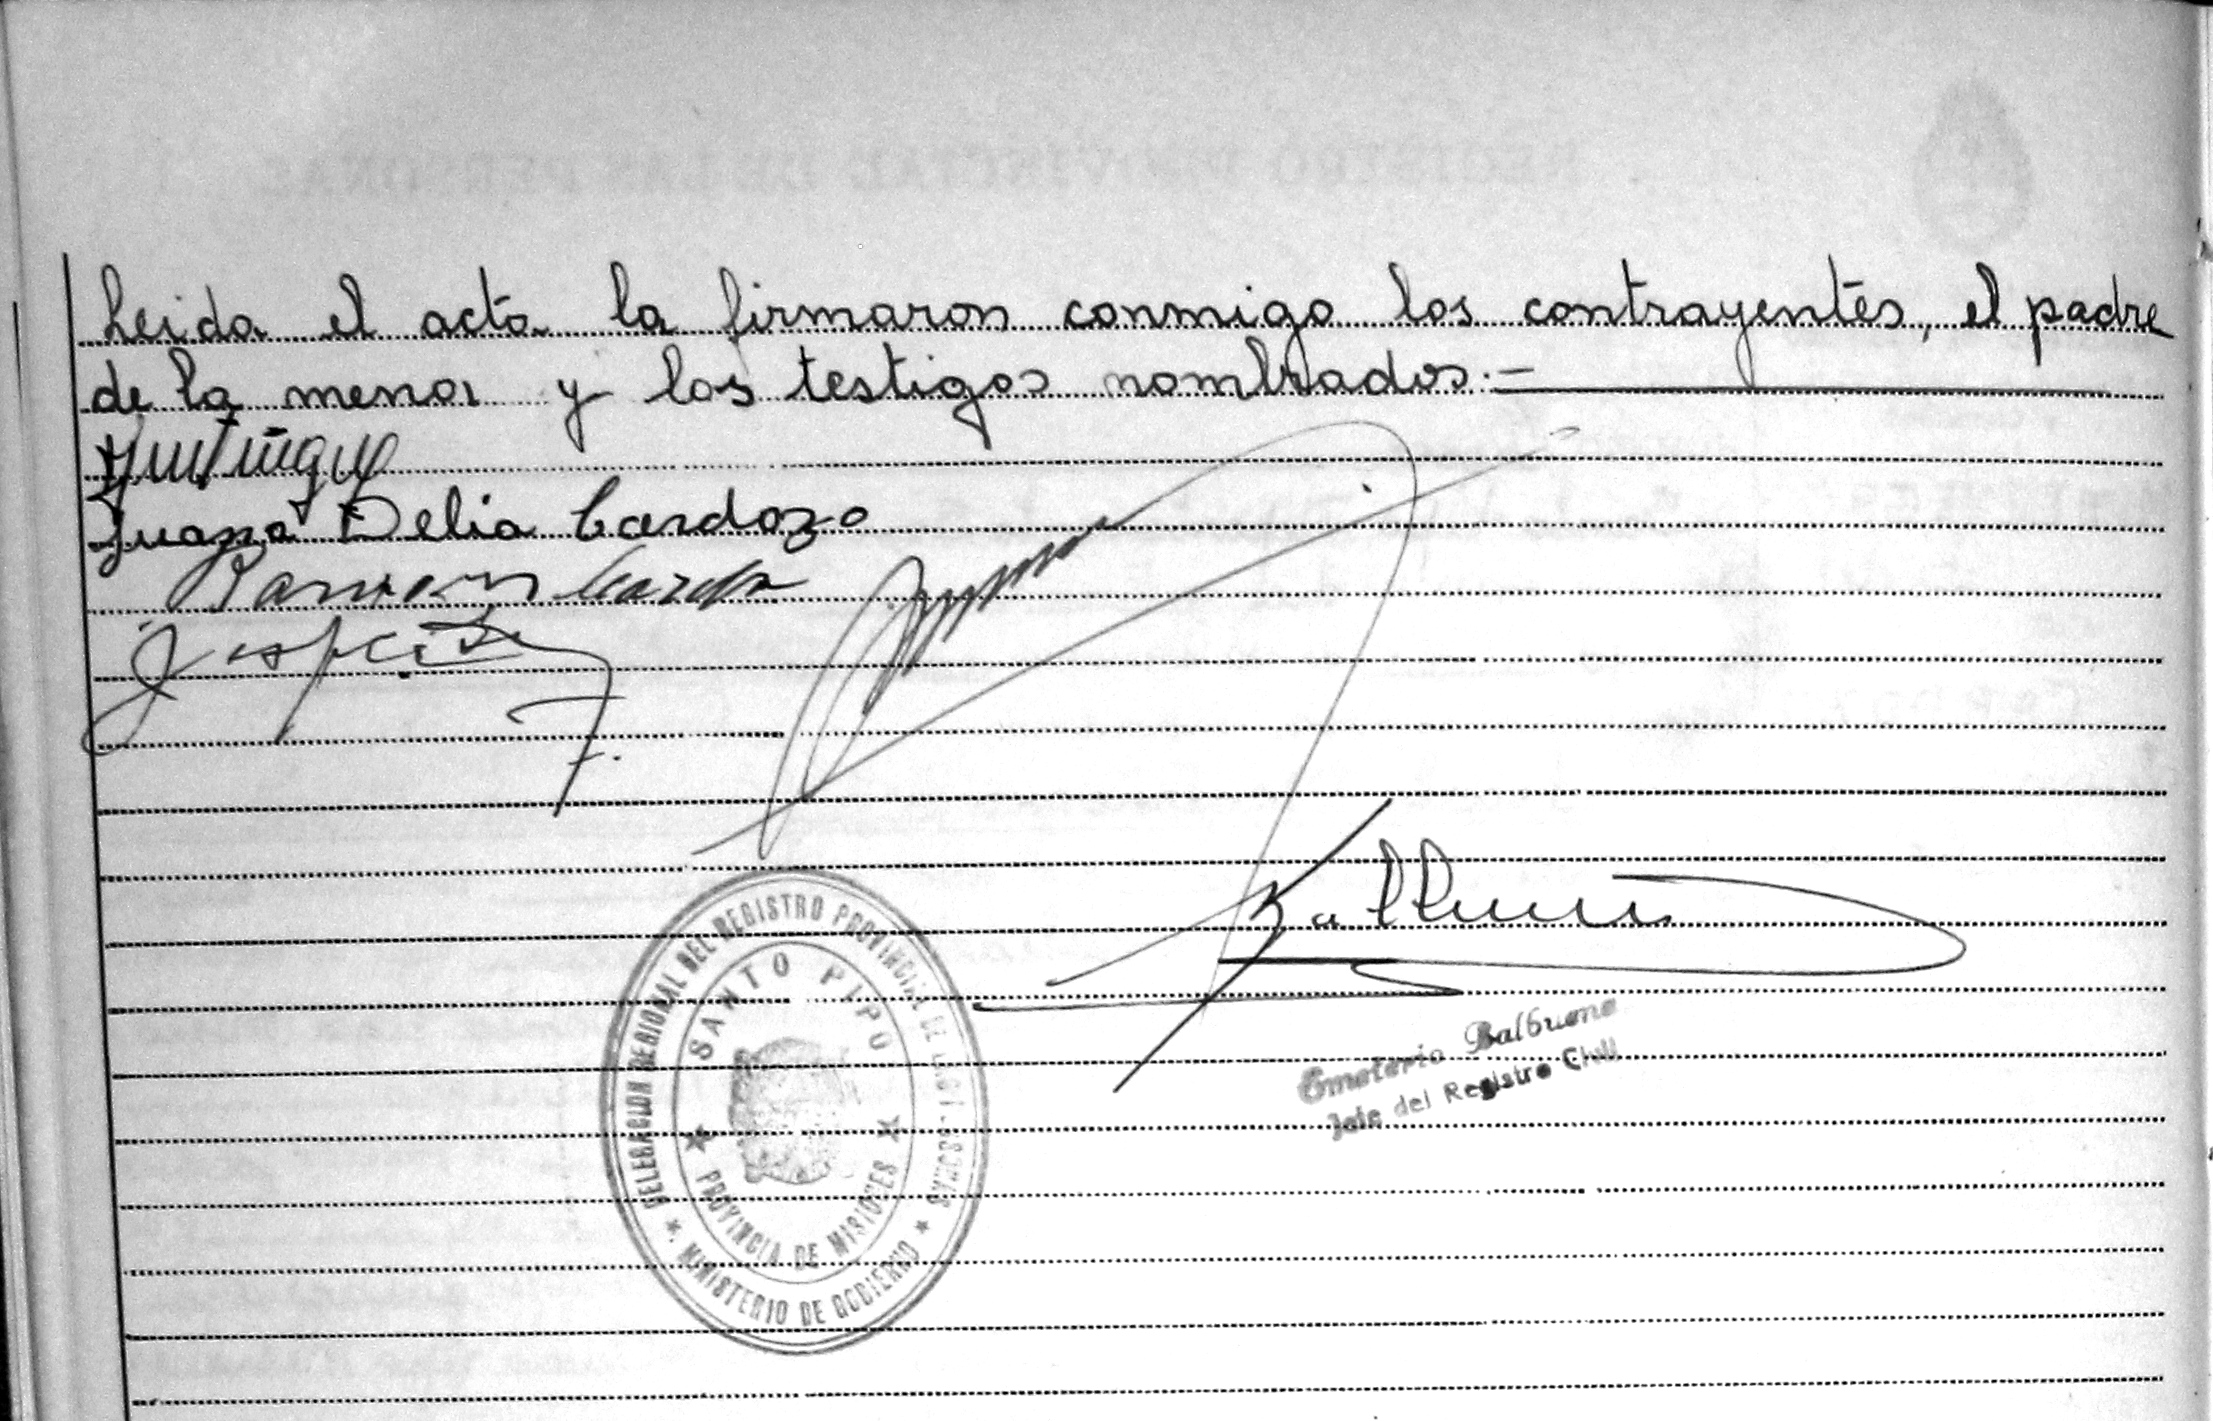 Leida el acta la firmaron conmigo los contrayentes, el padre
de la menor y los testigos nombrados.—
Juana Delia Cardozo
Ramon Cardozo
DELEGACION REGIONAL DEL REGISTRO PROVINCIAL DE LAS PERSONAS
SANTO PIPO
PROVINCIA DE MISIONES
MINISTERIO DE GOBIERNO
Emeterio Balbuena
Jefe del Registro Civil